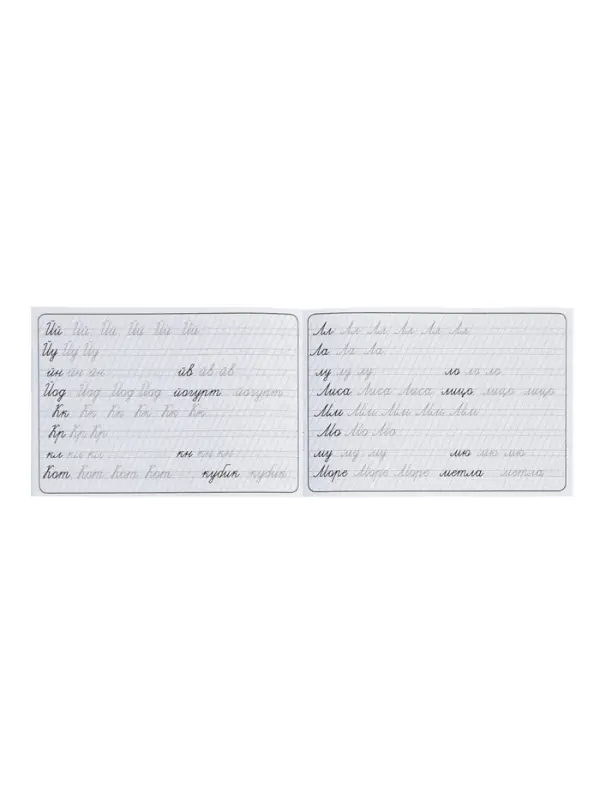 Йй Йй Йй Йй Йй Йй
Йу Йу Йу
йн йн йн йв йв йв
Йод Йод Йод Йод йогурт йогурт
Кк Кк Кк Кк Кк Кк
Кр Кр Кр
кл кл кл кн кн кн
Кот Кот Кот Кот кубик кубик
Лл Лл Лл Лл Лл Лл
Ла Ла Ла
лу лу лу ло ло ло
Лиса Лиса Лиса лицо лицо лицо
Мм Мм Мм Мм Мм Мм
Мо Мо Мо
му му му мю мю мю
Море Море Море метла метла